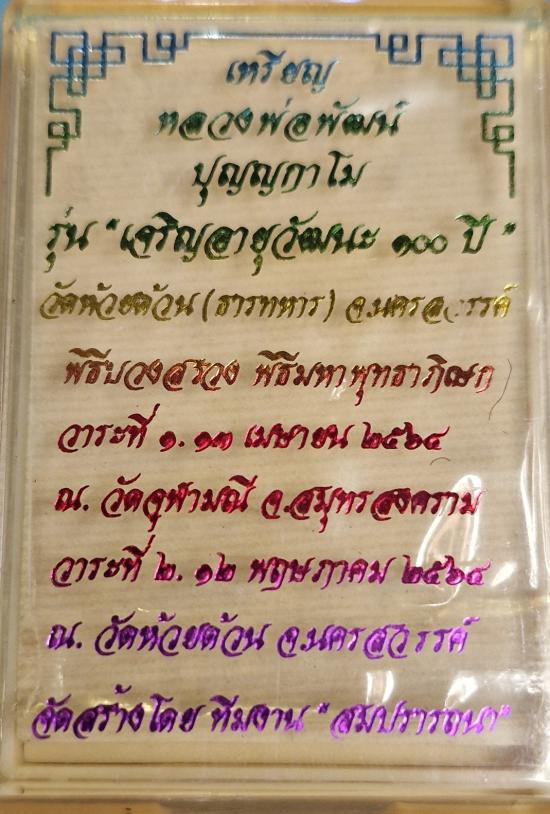 เหรียญ
หลวงพ่อพัฒน์
ปุญญกาโม
รุ่น "เจริญอายุวัฒนะ ๑๐๐ ปี"
วัดห้วยด้วน (ธารทหาร) จ.นครสวรรค์
พิธีบวงสรวง พิธีมหาพุทธาภิเษก
วาระที่ ๑. ๑๓ เมษายน ๒๕๖๔
ณ. วัดจุฬามณี จ.สมุทรสงคราม
วาระที่ ๒. ๑๒ พฤษภาคม ๒๕๖๔
ณ. วัดห้วยด้วน จ.นครสวรรค์
จัดสร้างโดย ทีมงาน "สมปรารถนา"